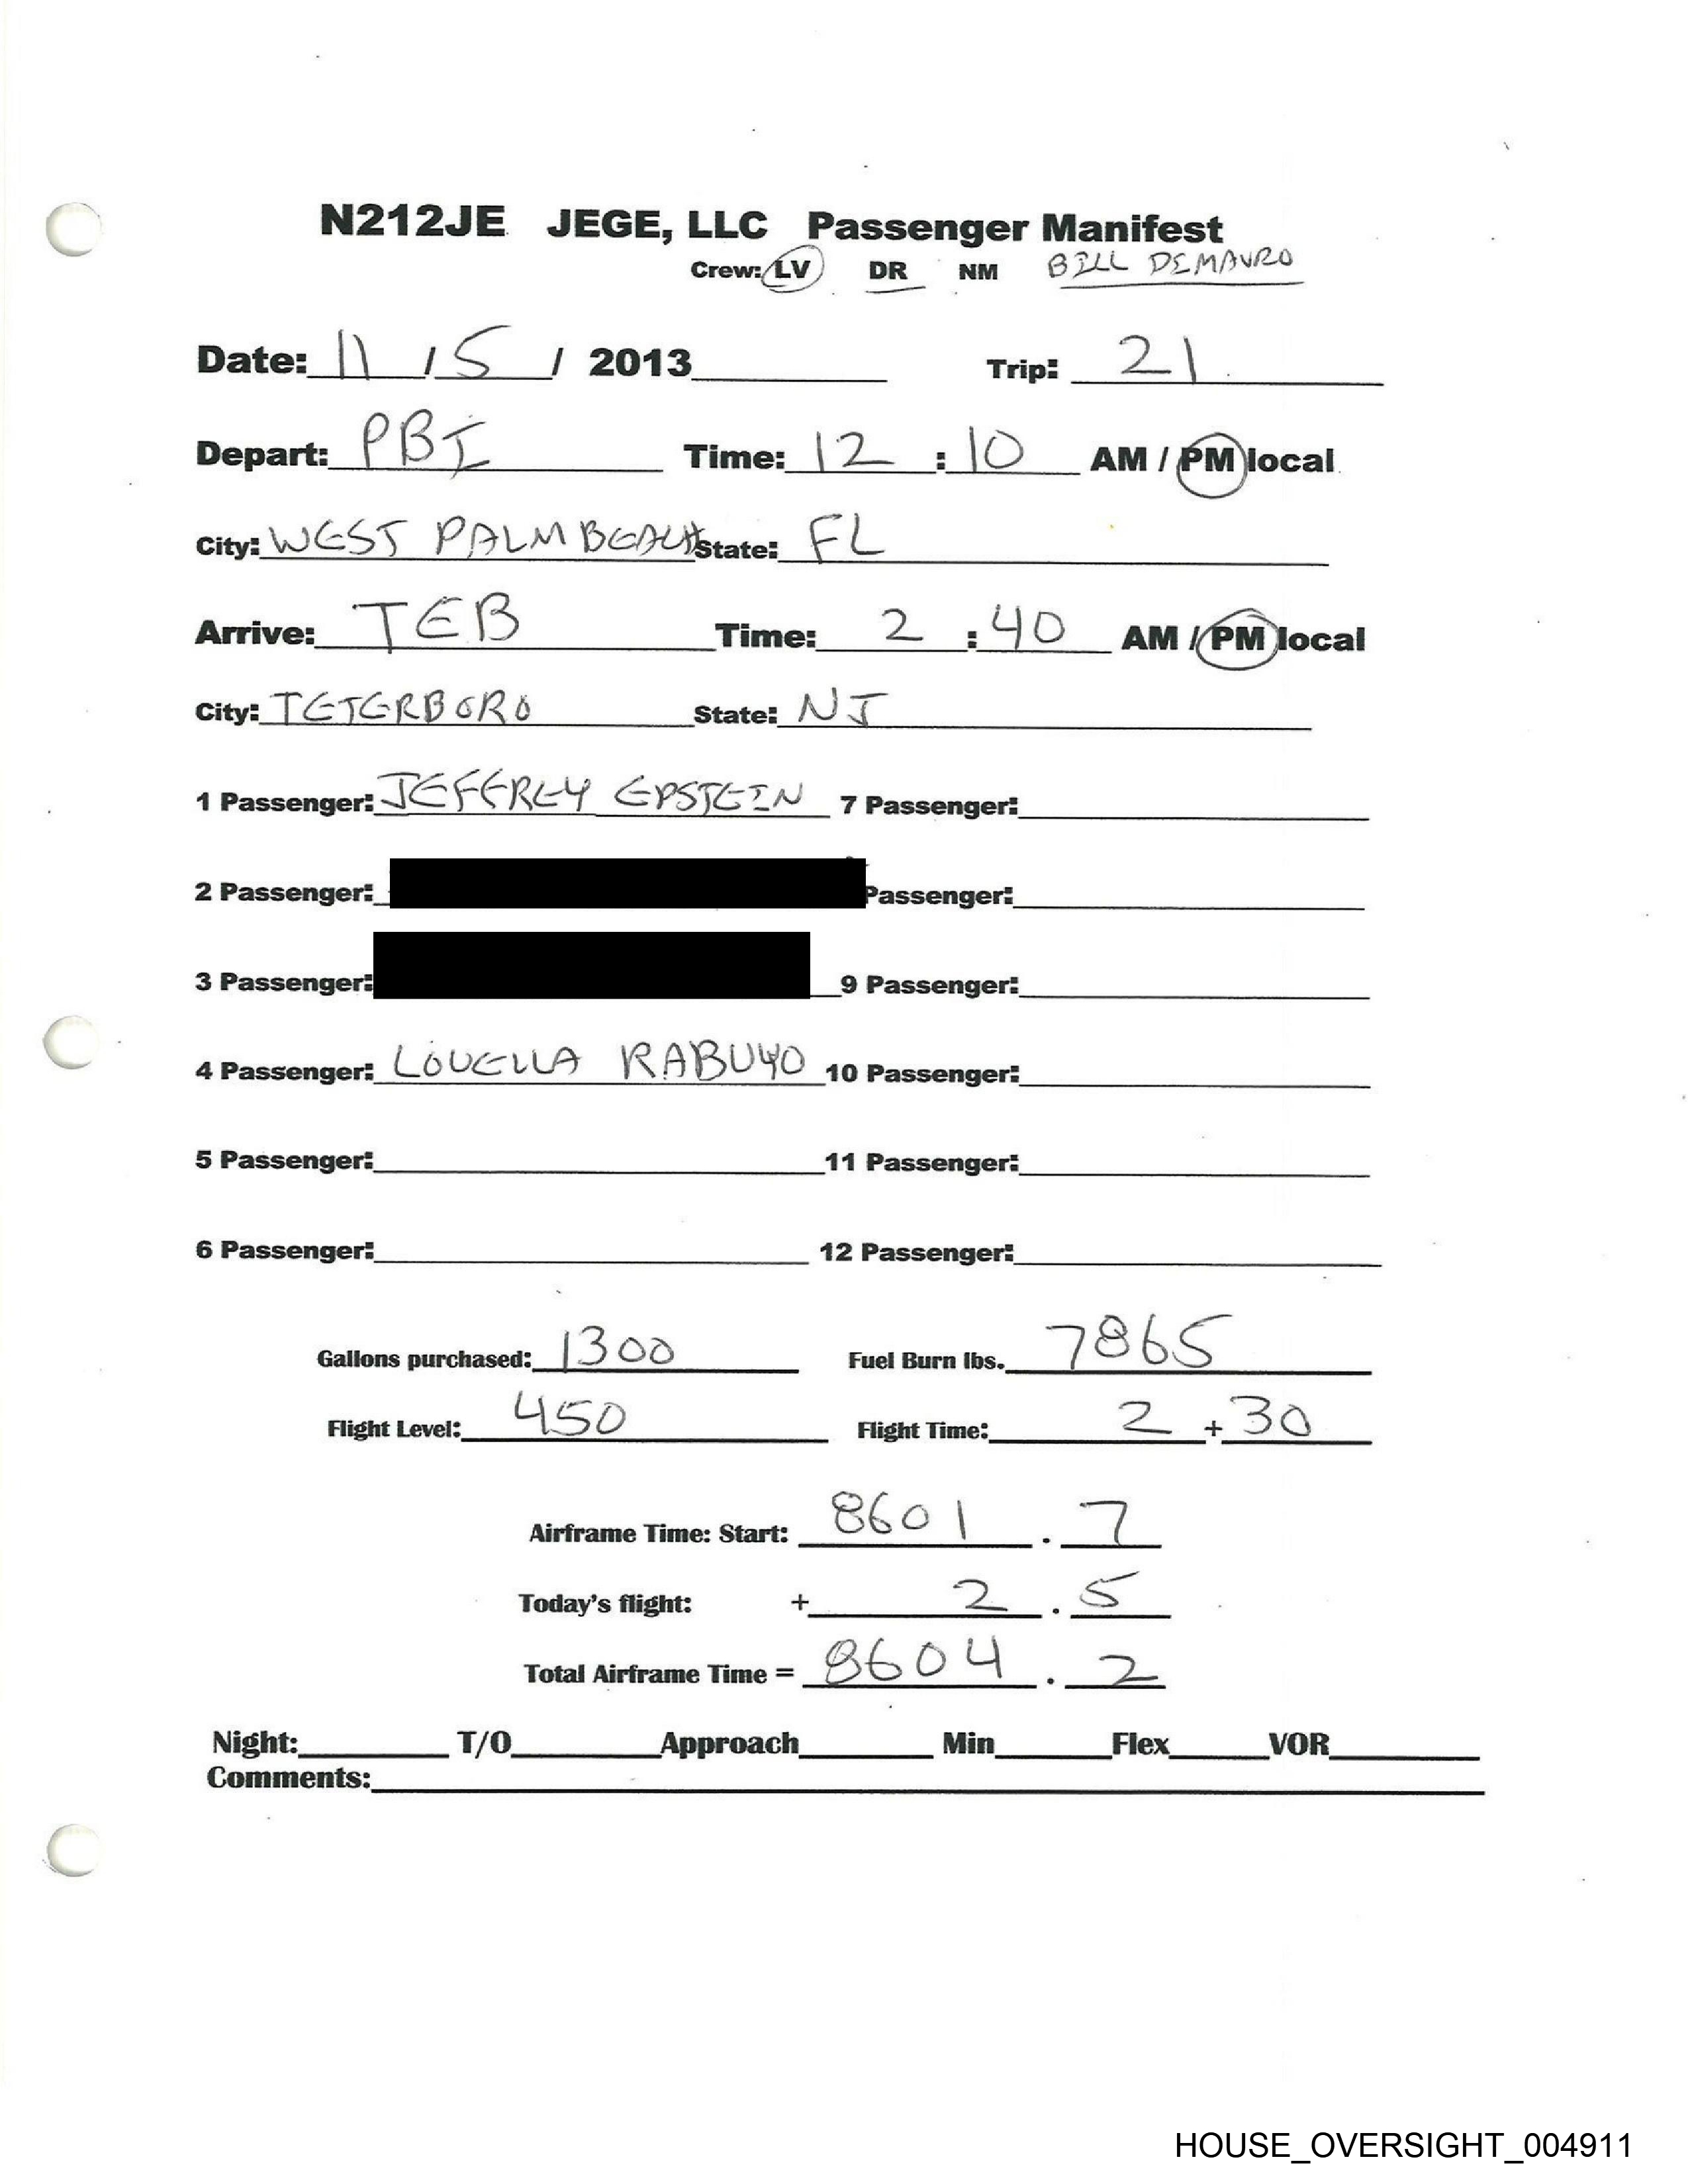 N212JE JEGE, LLC Passenger Manifest
Crew: LV DR NM BILL DEMAURO
Date: 11 / 5 / 2013 Trip: 21
Depart: PBI Time: 12 : 10 AM / PM local
City: WEST PALM BEACH State: FL
Arrive: TEB Time: 2 : 40 AM / PM local
City: TETERBORO State: NJ
1 Passenger: JEFFREY EPSTEIN 7 Passenger:
2 Passenger: Passenger:
3 Passenger: 9 Passenger:
4 Passenger: LOUELLA RABUYO 10 Passenger:
5 Passenger: 11 Passenger:
6 Passenger: 12 Passenger:
Gallons purchased: 1300 Fuel Burn lbs. 7865
Flight Level: 450 Flight Time: 2 + 30
Airframe Time: Start: 8601 . 7
Today's flight: + 2 . 5
Total Airframe Time = 8604 . 2
Night: T/O Approach Min Flex VOR
Comments:
HOUSE_OVERSIGHT_004911